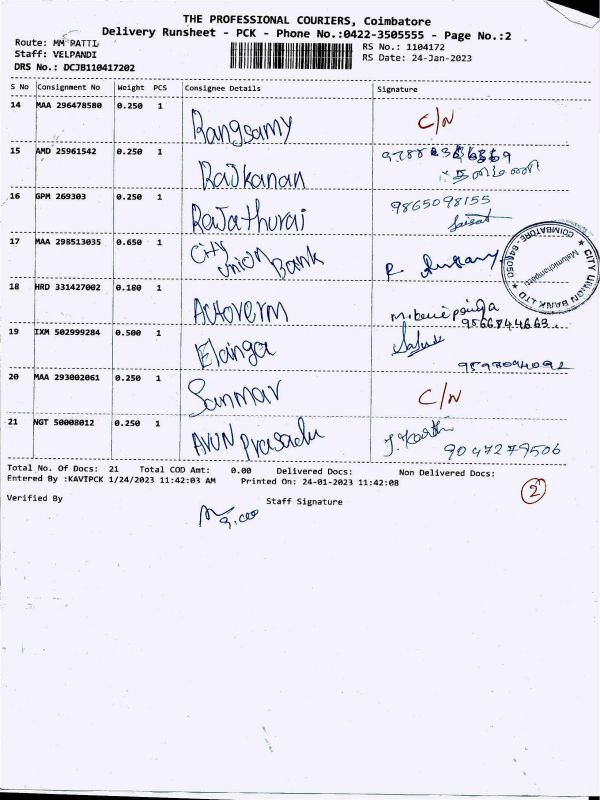 THE PROFESSIONAL COURIERS, Coimbatore
Delivery Runsheet - PCK - Phone No.:0422-3505555 - Page No.:2
Route: MM PATTI
RS No.: 1104172
Staff: VELPANDI
RS Date: 24-Jan-2023
DRS No.: DCJB110417202
S No Consignment No Weight PCS Consignee Details Signature
14 MAA 296478580 0.250 1 Rangsamy C/N
15 AMD 25961542 0.250 1 Rajkanan
16 GPM 269303 0.250 1 Rajathurai 9865098155
17 MAA 298513035 0.650 1 City Union Bank
COIMBATORE - 641050 ★ CITY UNION BANK LTD ★
18 HRD 331427002 0.180 1 9566844663
19 IXM 502999284 0.500 1 Elanga
20 MAA 293002061 0.250 1 Sanmar C/N
21 NGT 50008012 0.250 1 Arun Prasadu J. Karthi
9047279506
Total No. Of Docs: 21 Total COD Amt: 0.00 Delivered Docs: Non Delivered Docs:
Entered By :KAVIPCK 1/24/2023 11:42:03 AM Printed On: 24-01-2023 11:42:08
2
Verified By Staff Signature